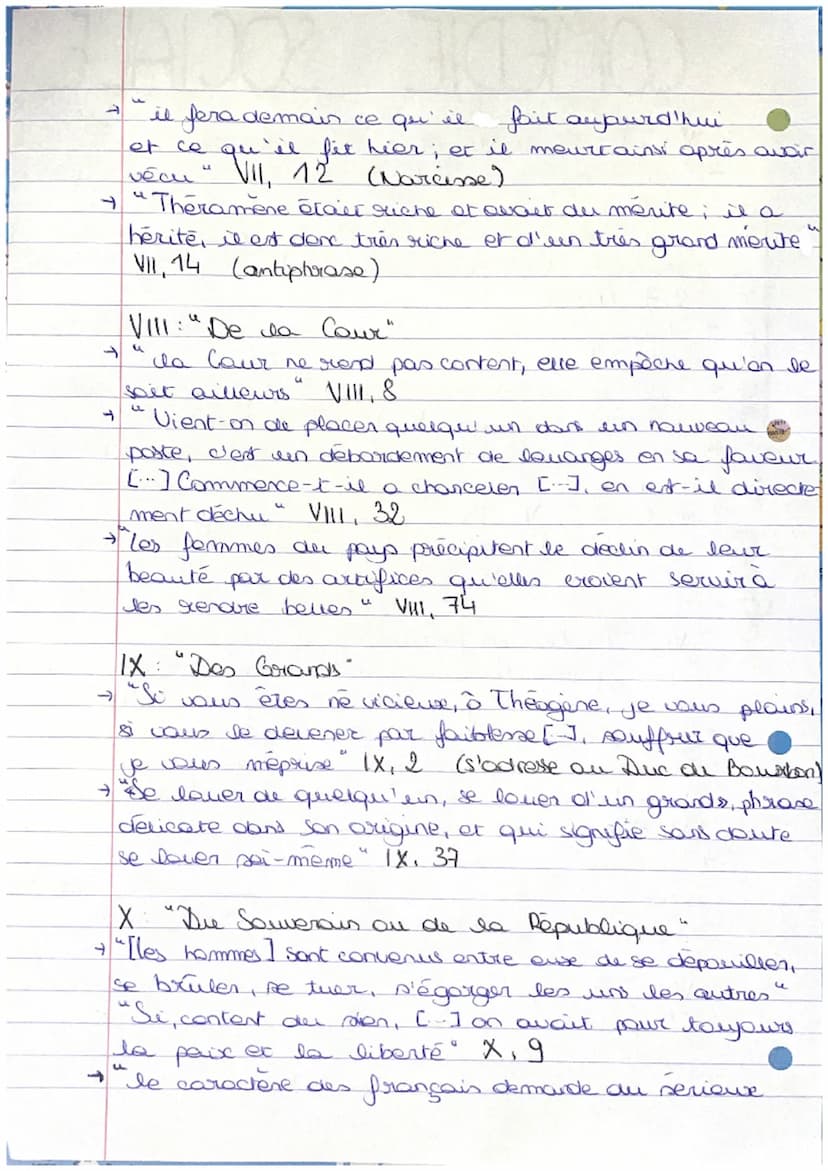 → "il fera demain ce qu'il fait aujourd'hui
et ce qu'il fit hier ; et il meurt ainsi après avoir
vécu" VII, 12 (Narcisse)
→ "Théramène était riche et avait du mérite ; il a
hérité, il est donc très riche et d'un très grand mérite"
VII, 14 (antiphrase)
VIII : "De la Cour"
→ "la Cour ne rend pas content, elle empêche qu'on le
soit ailleurs" VIII, 8
→ "Vient-on de placer quelqu'un dans un nouveau
poste, c'est un débordement de louanges en sa faveur
[...] Commence-t-il a chanceler [...], en est-il directe
ment déchu" VIII, 32
→ "les femmes du pays précipitent le déclin de leur
beauté par des artifices qu'elles croient servir à
les rendre belles" VIII, 74
IX : "Des Grands"
→ "Si vous êtes né vicieux, ô Théagène, je vous plains,
si vous le devenez par faiblesse [...], souffrez que
je vous méprise" IX, 2 (s'adresse au Duc du Bourbon)
→ "Se louer de quelqu'un, se louer d'un grand», phrase
délicate dans son origine, et qui signifie sans doute
se louer soi-même" IX, 37
X : "Du Souverain ou de la République"
→ "[les hommes] sont convenus entre eux de se dépouiller,
se brûler, se tuer, s'égorger les uns les autres"
"Si, content du sien, [...] on avait pour toujours
la paix et la liberté" X, 9
→ "le caractère des français demande du sérieux